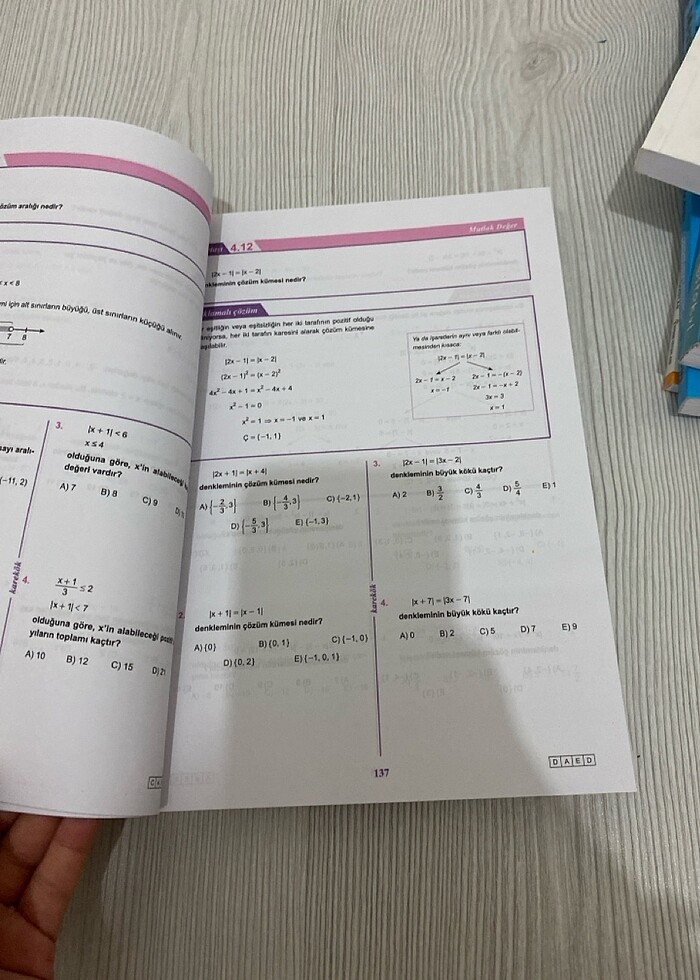 çözüm aralığı nedir?
x < 8
için alt sınırların büyüğü, üst sınırların küçüğü alınır.
7 8
3.
|x + 1| < 6
x ≤ 4
olduğuna göre, x'in alabileceği
değeri vardır?
A) 7 B) 8 C) 9
sayı aralı-
(-11, 2)
4.
x + 1
3
≤ 2
|x + 1| < 7
olduğuna göre, x'in alabileceği
toplamı kaçtır?
A) 10 B) 12 C) 15 D) 21
karekök
4.12
Mutlak Değer
|2x – 1| = |x – 2|
denkleminin çözüm kümesi nedir?
çözüm
eşitliğin veya eşitsizliğin her iki tarafının pozitif olduğu
her iki tarafın karesini alarak çözüm kümesine
|2x – 1| = |x – 2|
(2x – 1)² = (x – 2)²
4x² – 4x + 1 = x² – 4x + 4
x² – 1 = 0
x² = 1 ⇒ x = –1 ve x = 1
Ç = {–1, 1}
Ya da işaretlerin aynı veya farklı olabil-
mesinden kısaca:
|2x – 1| = |x – 2|
2x – 1 = x – 2 2x – 1 = –(x – 2)
x = –1 2x – 1 = –x + 2
3x = 3
x = 1
|2x + 1| = |x + 4|
denkleminin çözüm kümesi nedir?
A) {-2/3, 3} B) {-4/3, 3} C) {–2, 1}
D) {-5/3, 3} E) {–1, 3}
2.
|x + 1| = |x – 1|
denkleminin çözüm kümesi nedir?
A) {0} B) {0, 1} C) {–1, 0}
D) {0, 2} E) {–1, 0, 1}
karekök
3.
|2x – 1| = |3x – 2|
denkleminin büyük kökü kaçtır?
A) 2 B) 3/2 C) 4/3 D) 5/4 E) 1
4.
|x + 7| = |3x – 7|
denkleminin büyük kökü kaçtır?
A) 0 B) 2 C) 5 D) 7 E) 9
137
D A E D